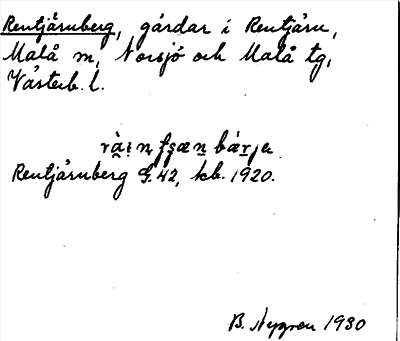 Rentjärnberg, gårdar i Rentjärn,
Malå sn, Norsjö och Malå tg,
Västerb. l.
Rentjärnberg G. 42, kb. 1920.
B. Nygren 1930